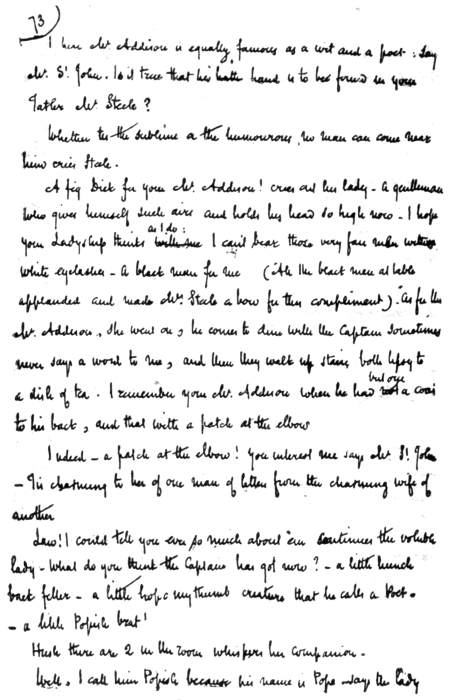 73
I hear Mr. Addison is equally famous as a wit and a poet: says
Mr. St. John. Is it true that his hand is to be found in your
Tatler Mr Steele?
Whether tis the sublime or the humourous, no man can come near
him cries Steele.
A fig Dick for your Mr. Addison! cries out his lady - a gentleman
who gives himself such airs and holds his head so high now - I hope
your Ladyship thinks as I do: I can't bear those very fair men with
white eyelashes - a black man for me (All the black men at table
applauded and made Mrs. Steele a bow for this compliment) - As for this
Mr. Addison, she went on, he comes to dine with the Captain sometimes
never says a word to me, and then they walk up stairs both tipsy to
a dish of tea. I remember your Mr. Addison when he had but one coat
to his back, and that with a patch at the elbow
Indeed - a patch at the elbow! you interest me says Mr. St. John
- Tis charming to hear of one man of letters from the charming wife of
another
Law! I could tell you ever so much about 'em continues the voluble
lady - What do you think the Captain has got now? - a little hunch
back feller - a little hop o my thumb creature that he calls a Poet -
- a little Popish brat!
Hush there are 2 in the room whispers her companion -
Well, I call him Popish because his name is Pope - says the lady